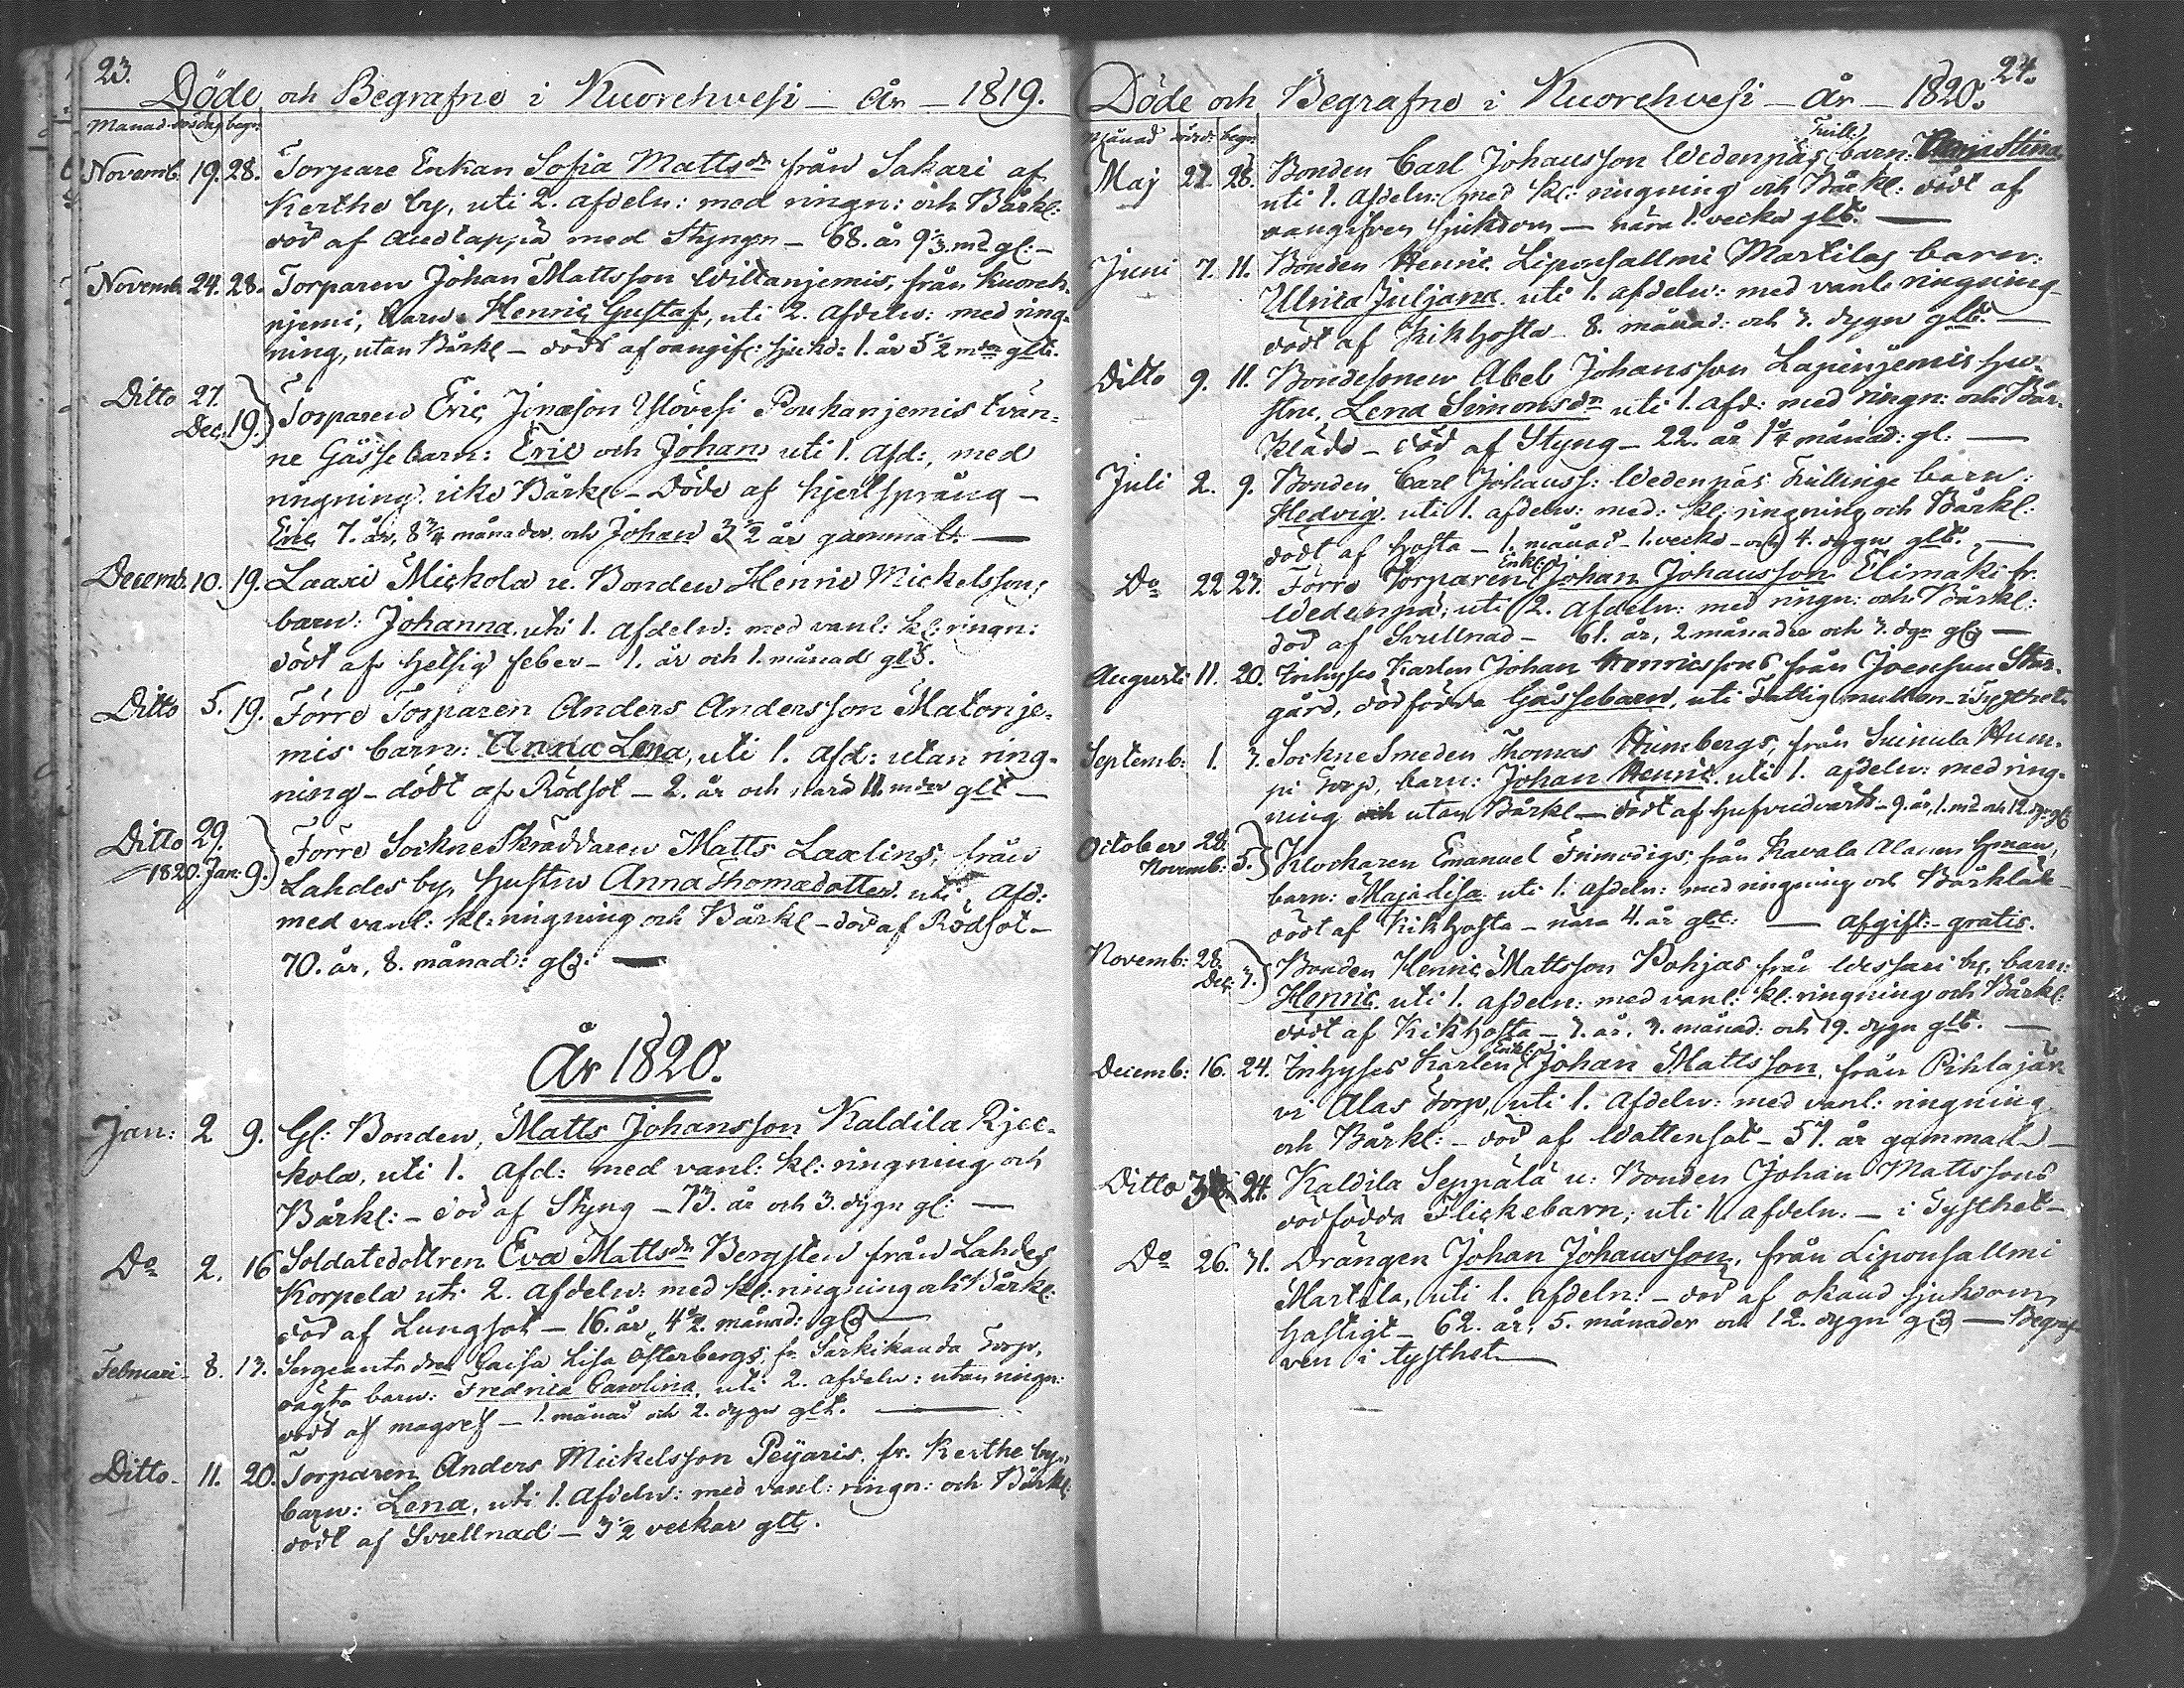 23.
Döde och Begrafne i Kuorehvesi — År — 1819.
Månad dösdag begr:
Novemb. 19. 28. Torpare Enkan Sofia Mattsdr från Sakari af
Kerthe by, uti 2. afdeln: med ringn: och Bårkl:
död af Andtäppa med Styngn — 68. år 9 1/3. md gl: —
Novemb. 24. 28. Torparen Johan Mattsson Wiltanjemis, från Kuoreh-
njemi, barn Henric Gustaf, uti 2. Afdeln: med ring-
ning, utan Bårkl — dödt af oangifv: sjukd: 1. år 5 1/2 mdr glt.
Ditto 27. Dec. 19. Torparen Eric Jonasson Ylövesi Pouhanjemis tvän-
ne Gåssebarn: Eric och Johan uti 1. Afd:, med
ringning icke Bårkl — Döde af hjertsprång —
Eric 7. år, 8 3/4 månader och Johan 3 1/2 år gammalt —
Decemb. 10. 19. Laaxi Mickola u. Bonden Henric Mickelssons
barn: Johanna uti 1. afdeln: med vanl: kl: ringn:
dödt af hetsig feber — 1. år och 1. månad glt.
Ditto 5. 19. Förre Torparen Anders Andersson Matonje-
mis barn: Anna Lena, uti 1. Afd: utan ring-
ning — dödt af Rödsot — 2. år och nära 11. mder glt —
Ditto 29. 1820. Jan: 9. Förre SockneSkräddaren Matts Laxlins, från
Lahdes by, hustru Anna Thomædotter uti Afd:
med vanl: kl: ringning och Bårkl — död af Rödsot —
70. år, 8. månad: gl. —
År 1820.
Jan: 2 9. Gl: Bonden, Matts Johansson Kaldila Rjec-
kola, uti 1. Afd: med vanl: kl: ringning och
Bårkl: — död af Styng — 73. år och 3. dygn gl: —
Do 2. 16 Soldatedottren Eva Mattsdr Bergsten från Lahdes
Korpela uti 2. Afdeln: med kl: ringning och Bårkl:
död af Lungsot — 16. år 4 1/2. månad: gl —
Februari 8. 13. Sergeants Caisa Lisa Österbergs, fr. Särkikanda Torp,
oägta barn: Fredrica Carolina, uti 2. afdeln: utan ringn:
dödt af magref — 1. månad och 2. dygn glt. —
Ditto 11. 20. Torparen Anders Mickelsson Peijaris, fr. Kerthe by,
barn: Lena, uti 1. Afdeln: med vanl: ringn: och Bårkl:
dödt af Svullnad — 3 1/2 veckor glt.
24.
Döde och Begrafne i Kuorehvesi — År — 1820.
Månad dösd: begr.
Maj 27. 28. Bonden Carl Johansson Wedenpäs Tvill: barn:
uti 1. Afdeln: med kl: ringning och Bårkl: dödt af
oangifven sjukdom — nära 1. vecka glt. —
Juni 7. 11. Bonden Henric Liponsallmi Martilas barn:
Ulrica Juljana uti 1. afdeln: med vanl: ringning
dödt af Kikhosta 8. månad: och 3. dygn glt. —
Ditto 9. 11. Bondesonen Abel Johansson Lapinjemis hu-
stru, Lena Simonsdr uti 1. afd: med ringn: och Bår-
kläde — död af Styng — 22. år 1 1/4 månad: gl: —
Juli 2. 9. Bonden Carl Johanss: Wedenpäs Tvillinge barn:
Hedvig uti 1. afdeln: med: kl: ringning och Bårkl:
dödt af hosta — 1. månad — 1. vecka och 4. dygn glt. —
Do 22 23. Förre Torparen Enkl: Johan Johansson Elimäki fr.
Wedenpä, uti 2. Afdeln: med ringn: och Bårkl:
död af Svullnad — 61. år, 2 månader och 3. dgn gl —
Augusti 11. 20. Inhyses Karlen Johan Henricssons från Joensuu Stor-
gård, dödfödda Gåssebarn, uti Fattig mullen — i Tysthet.
Septemb: 1. 3. SockneSmeden Thomas Humbergs, från Suinula Hum-
pi Torp, barn: Johan Henric uti 1. afdeln: med ring-
ning utan Bårkl — dödt af hufvudvärk — 9. år, 1. md och 12. dgr glt
October 28. Novemb: 5. Klockaren Emanuel Frimodigs, från Kavala Alanen hman,
barn: Maja Lisa uti 1. Afdeln: med ringning och Bårkläde
dödt af Kikhosta — nära 4. år glt: — afgift: — gratis.
Novemb: 28. Dec. 3. Bonden Henric Mattsson Pohjas från Wessari by, barn:
Henric uti 1. afdeln: med vanl: kl: ringning och Bårkl:
dödt af Kikhosta — 7. år, 3. månad: och 19. dygn glt. —
Decemb: 16. 24. Inhyses Karlen Enkl: Johan Mattsson, från Pihlajär
vi Alas Torp, uti 1. Afdeln: med vanl: ringning
och Bårkl: — död af Wattensot — 57. år gammal —
Ditto 24. Kaldila Seppälä u: Bonden Johan Mattssons
dödfödda Flickebarn, uti 1. afdeln: — i Tysthet —
Do 26. 31. Drängen Johan Johansson, från Liponsallmi
Martila, uti 1. Afdeln: — död af okänd sjukdom
hastigt — 62. år, 5. månader och 12. dygn gl — Begraf-
ven i tysthet —